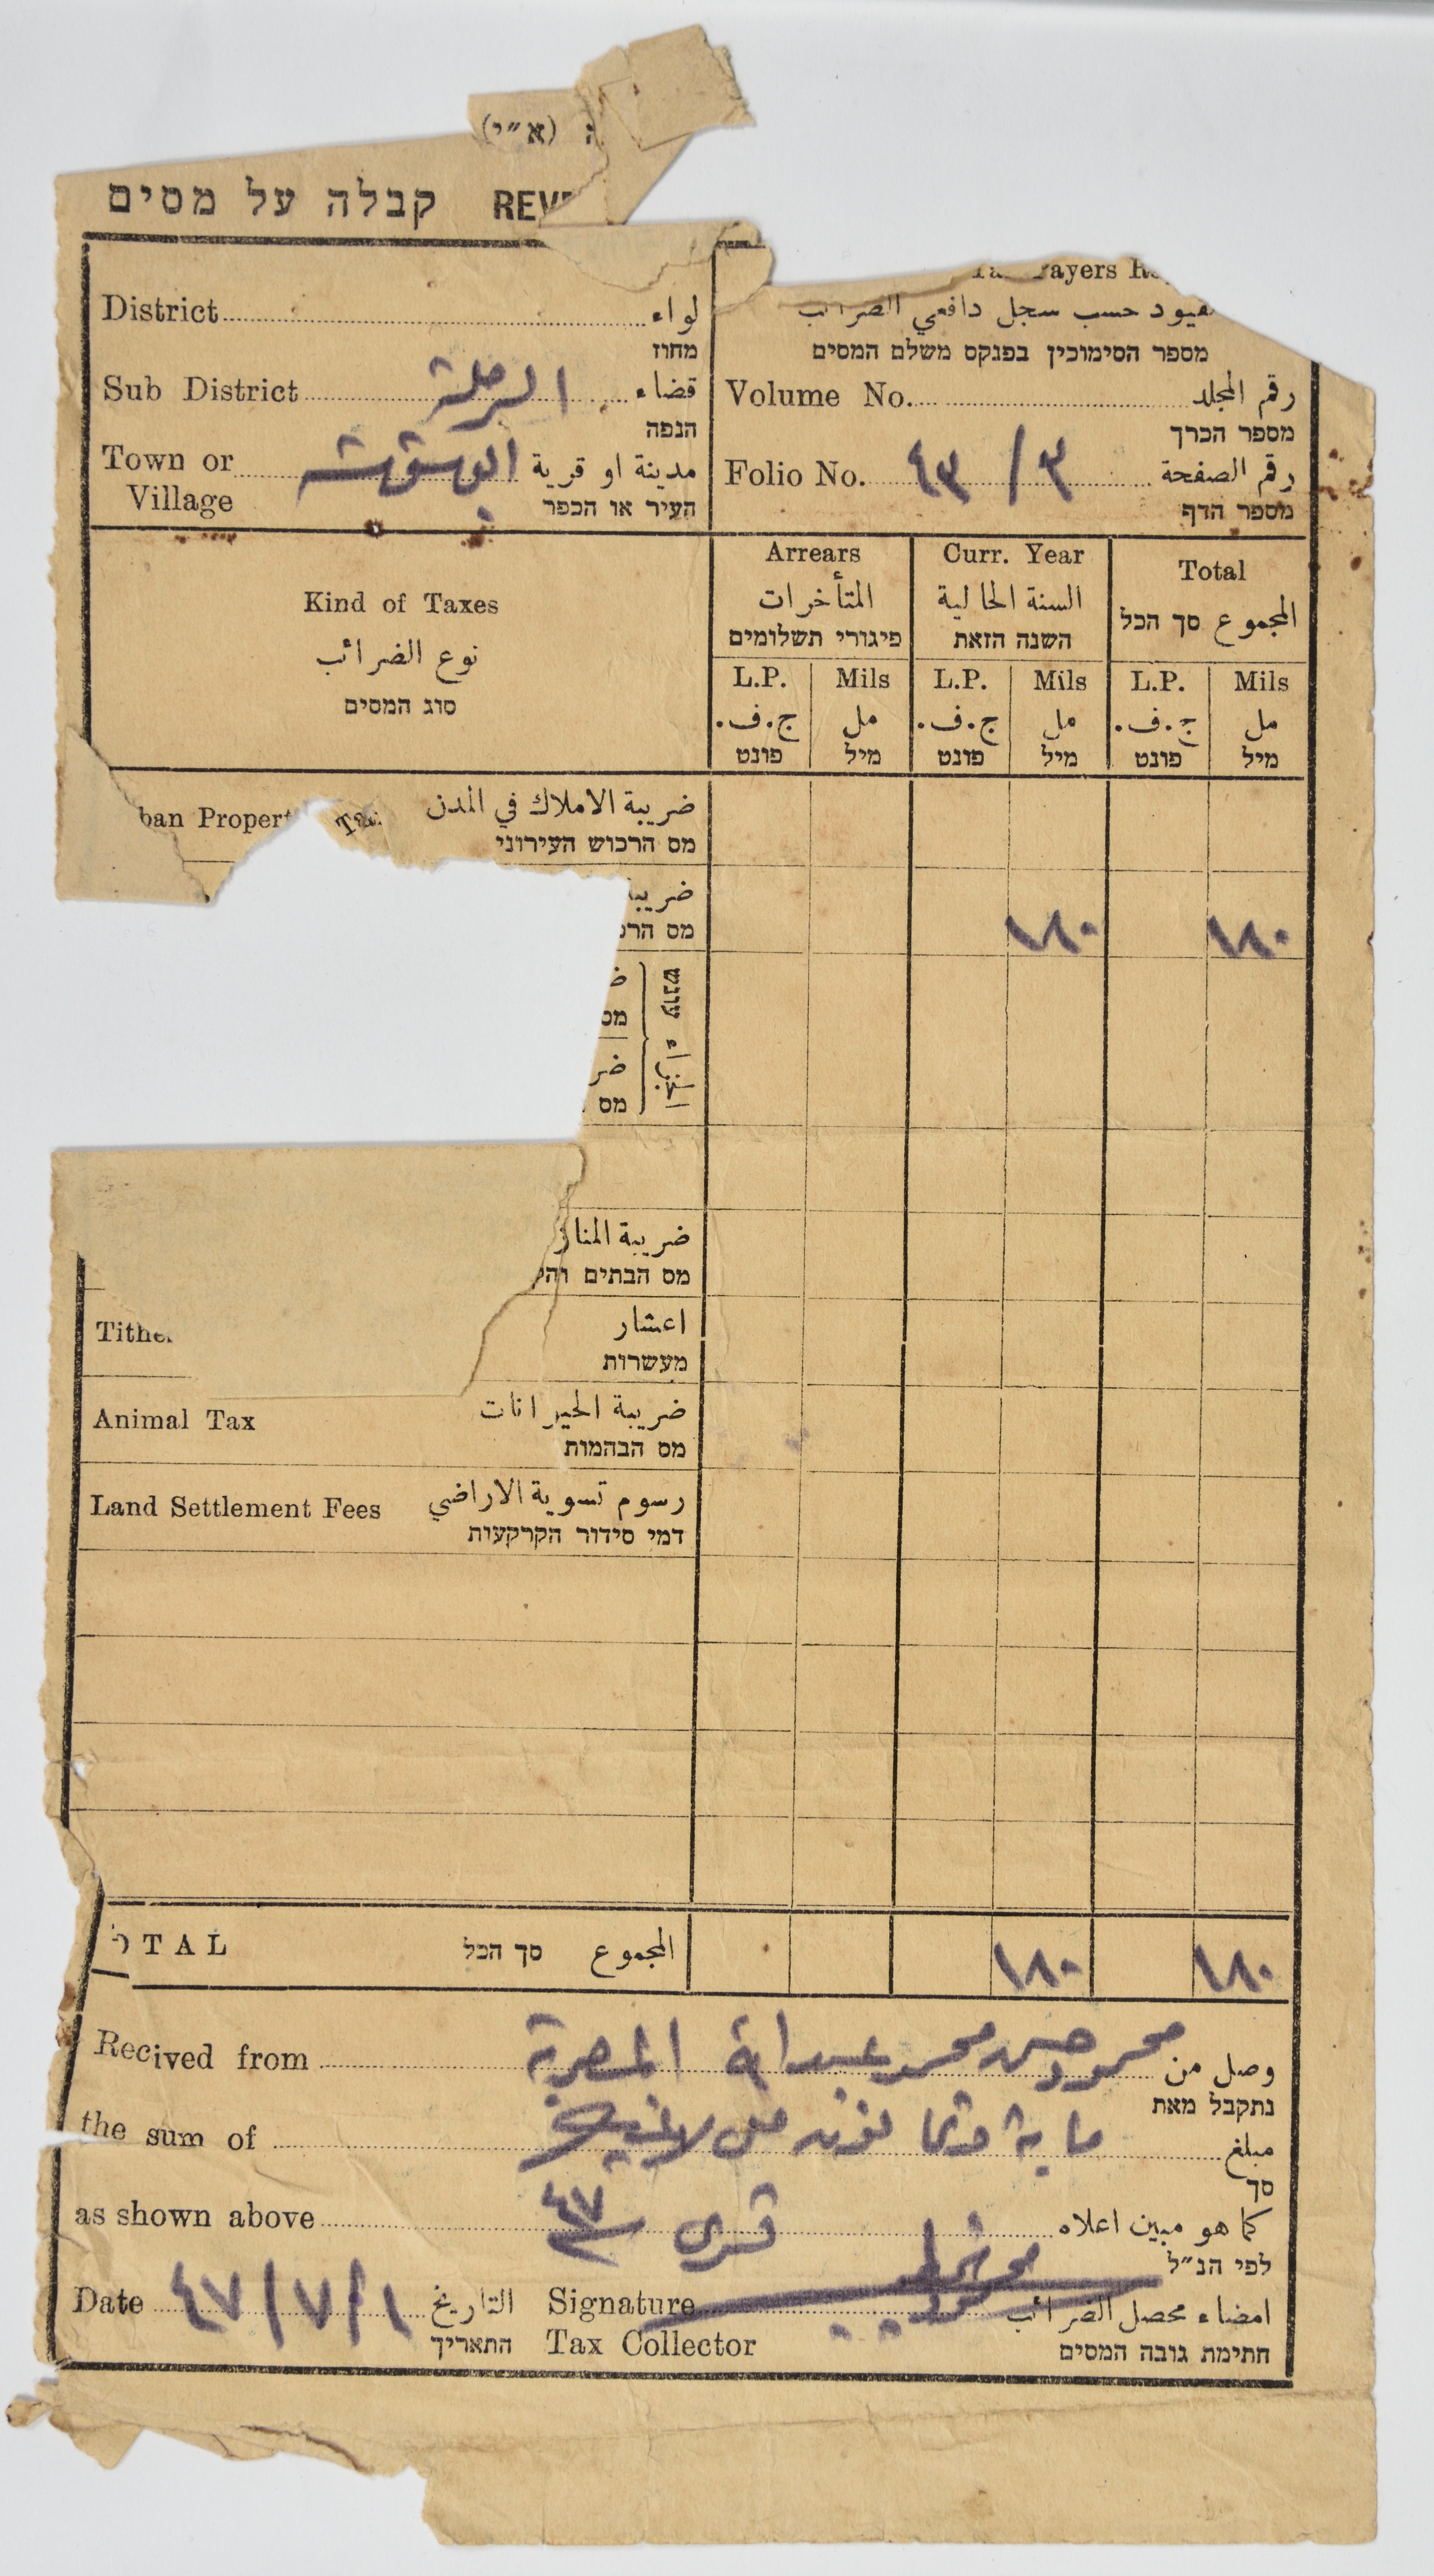 (א״י)
REV קבלה על מסים
Payers
District لواء
מחוז
حسب سجل دافعي الضرائب
מספר הסימוכין בפנקס משלם המסים
Sub District الرملة قضاء
הנפה
Volume No. رقم المجلد
מספר הכרך
Town or Village مدينة او قرية
העיר או הכפר
Folio No. ٩٣ / ٣ رقم الصفحة
מספר הדף
Kind of Taxes
نوع الضرائب
סוג המסים
Arrears
المتأخرات
פיגורי תשלומים
Curr. Year
السنة الحالية
השנה הזאת
Total
المجموع סך הכל
L.P. Mils L.P. Mils L.P. Mils
ج.ف. مل ج.ف. مل ج.ف. مل
פונט מיל פונט מיל פונט מיל
ban Propert Tax ضريبة الاملاك في المدن
מס הרכוש העירוני
ضريبة
מס
١٨٠ ١٨٠
עונש
الجزاء
מס
ضريبة
מס הבתים
Tithe اعشار
מעשרות
Animal Tax ضريبة الحيوانات
מס הבהמות
Land Settlement Fees رسوم تسوية الاراضي
דמי סידור הקרקעות
OTAL סך הכל المجموع ١٨٠ ١٨٠
Recived from محمود حسن محمد وصل من
נתקבל מאת
the sum of ماية مبلغ
סך
as shown above ٤٧ كما هو مبين اعلاه
לפי הנ״ל
Date ٤٧/٧/١ التاريخ
התאריך
Signature امضاء محصل الضرائب
Tax Collector חתימת גובה המסים